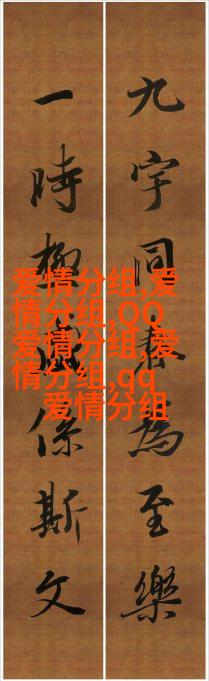 九宇同春為至樂
一時極係斯文
爱情分组,爱
情分组,QQ
爱情分组,爱
情分组,qq
爱情分组